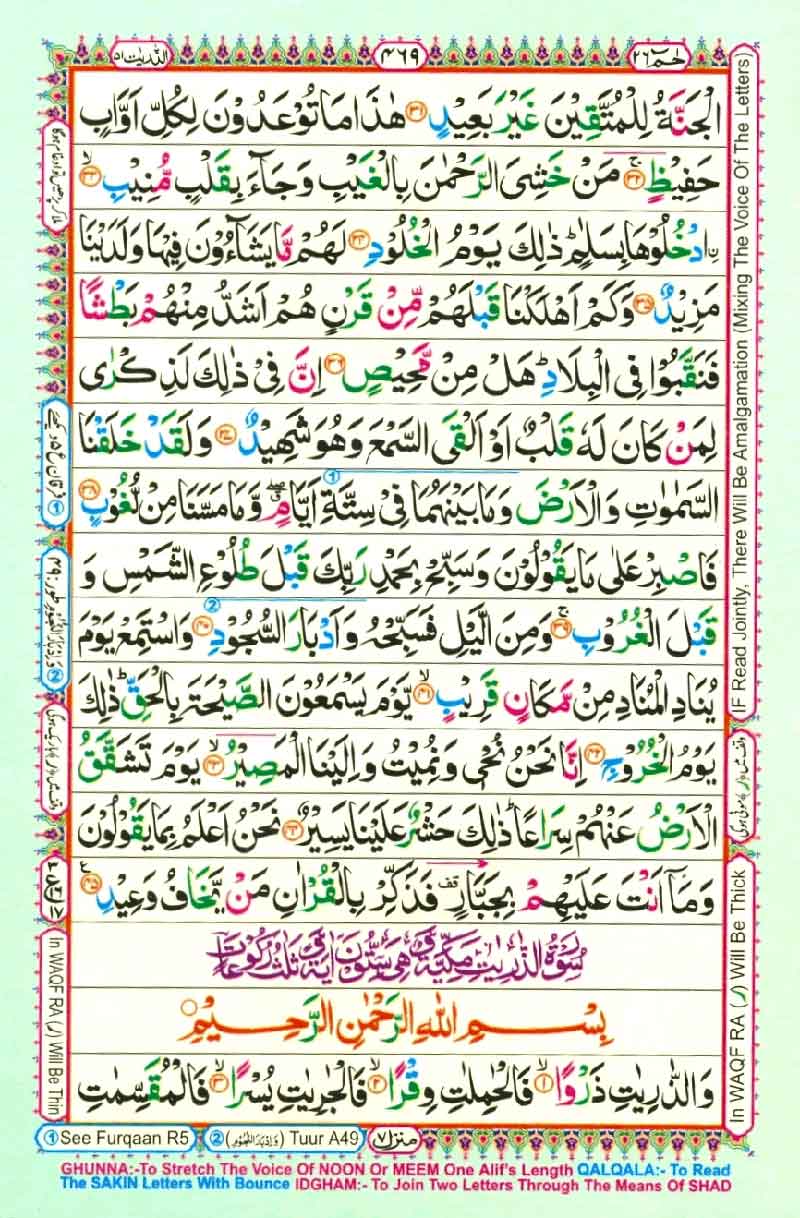 الذّٰریٰت ۵۱
۴۶۹
حٰمٓ ۲۶
الْجَنَّةُ لِلْمُتَّقِیْنَ غَیْرَ بَعِیْدٍ ۳۱ هٰذَا مَا تُوْعَدُوْنَ لِكُلِّ اَوَّابٍ
حَفِیْظٍ ۚ ۳۲ مَنْ خَشِیَ الرَّحْمٰنَ بِالْغَیْبِ وَجَآءَ بِقَلْبٍ مُّنِیْبِ ۙ ۳۳
ن ادْخُلُوْهَا بِسَلٰمٍ ؕ ذٰلِكَ یَوْمُ الْخُلُوْدِ ۳۴ لَهُمْ مَّا یَشَآءُوْنَ فِیْهَا وَلَدَیْنَا
مَزِیْدٌ ۳۵ وَكَمْ اَهْلَكْنَا قَبْلَهُمْ مِّنْ قَرْنٍ هُمْ اَشَدُّ مِنْهُمْ بَطْشًا
فَنَقَّبُوْا فِی الْبِلَادِ ؕ هَلْ مِنْ مَّحِیْصٍ ۳۶ اِنَّ فِیْ ذٰلِكَ لَذِكْرٰی
لِمَنْ كَانَ لَهٗ قَلْبٌ اَوْ اَلْقَی السَّمْعَ وَهُوَ شَهِیْدٌ ۳۷ وَلَقَدْ خَلَقْنَا
السَّمٰوٰتِ وَالْاَرْضَ وَمَا بَیْنَهُمَا فِیْ سِتَّةِ اَیَّامٍ ۖۗ وَّمَا مَسَّنَا مِنْ لُّغُوْبٍ ۳۸
فَاصْبِرْ عَلٰی مَا یَقُوْلُوْنَ وَسَبِّحْ بِحَمْدِ رَبِّكَ قَبْلَ طُلُوْعِ الشَّمْسِ وَ
قَبْلَ الْغُرُوْبِ ۚ ۳۹ وَمِنَ الَّیْلِ فَسَبِّحْهُ وَاَدْبَارَ السُّجُوْدِ ۴۰ وَاسْتَمِعْ یَوْمَ
یُنَادِ الْمُنَادِ مِنْ مَّكَانٍ قَرِیْبٍ ۙ ۴۱ یَّوْمَ یَسْمَعُوْنَ الصَّیْحَةَ بِالْحَقِّ ؕ ذٰلِكَ
یَوْمُ الْخُرُوْجِ ۴۲ اِنَّا نَحْنُ نُحْیٖ وَنُمِیْتُ وَاِلَیْنَا الْمَصِیْرُ ۙ ۴۳ یَوْمَ تَشَقَّقُ
الْاَرْضُ عَنْهُمْ سِرَاعًا ؕ ذٰلِكَ حَشْرٌ عَلَیْنَا یَسِیْرٌ ۴۴ نَحْنُ اَعْلَمُ بِمَا یَقُوْلُوْنَ
وَمَاۤ اَنْتَ عَلَیْهِمْ بِجَبَّارٍ ۫ فَذَكِّرْ بِالْقُرْاٰنِ مَنْ یَّخَافُ وَعِیْدِ ۴۵
سُوْرَةُ الذّٰرِیٰتِ مَكِّیَّةٌ وَّهِیَ سِتُّوْنَ اٰیَةً وَّثَلٰثُ رُكُوْعَاتٍ
بِسْمِ اللهِ الرَّحْمٰنِ الرَّحِیْمِ
وَالذّٰرِیٰتِ ذَرْوًا ۙ ۱ فَالْحٰمِلٰتِ وِقْرًا ۙ ۲ فَالْجٰرِیٰتِ یُسْرًا ۙ ۳ فَالْمُقَسِّمٰتِ
IF Read Jointly, There Will Be Amalgamation (Mixing The Voice Of The Letters)
In WAQF RA (ر) Will Be Thick
In WAQF RA (ر) Will Be Thin
① See Furqaan R5
② (وَاِدْبَارَ النُّجُوْمِ) Tuur A49
منزل ۷
GHUNNA:-To Stretch The Voice Of NOON Or MEEM One Alif's Length QALQALA:- To Read
The SAKIN Letters With Bounce IDGHAM:- To Join Two Letters Through The Means Of SHAD